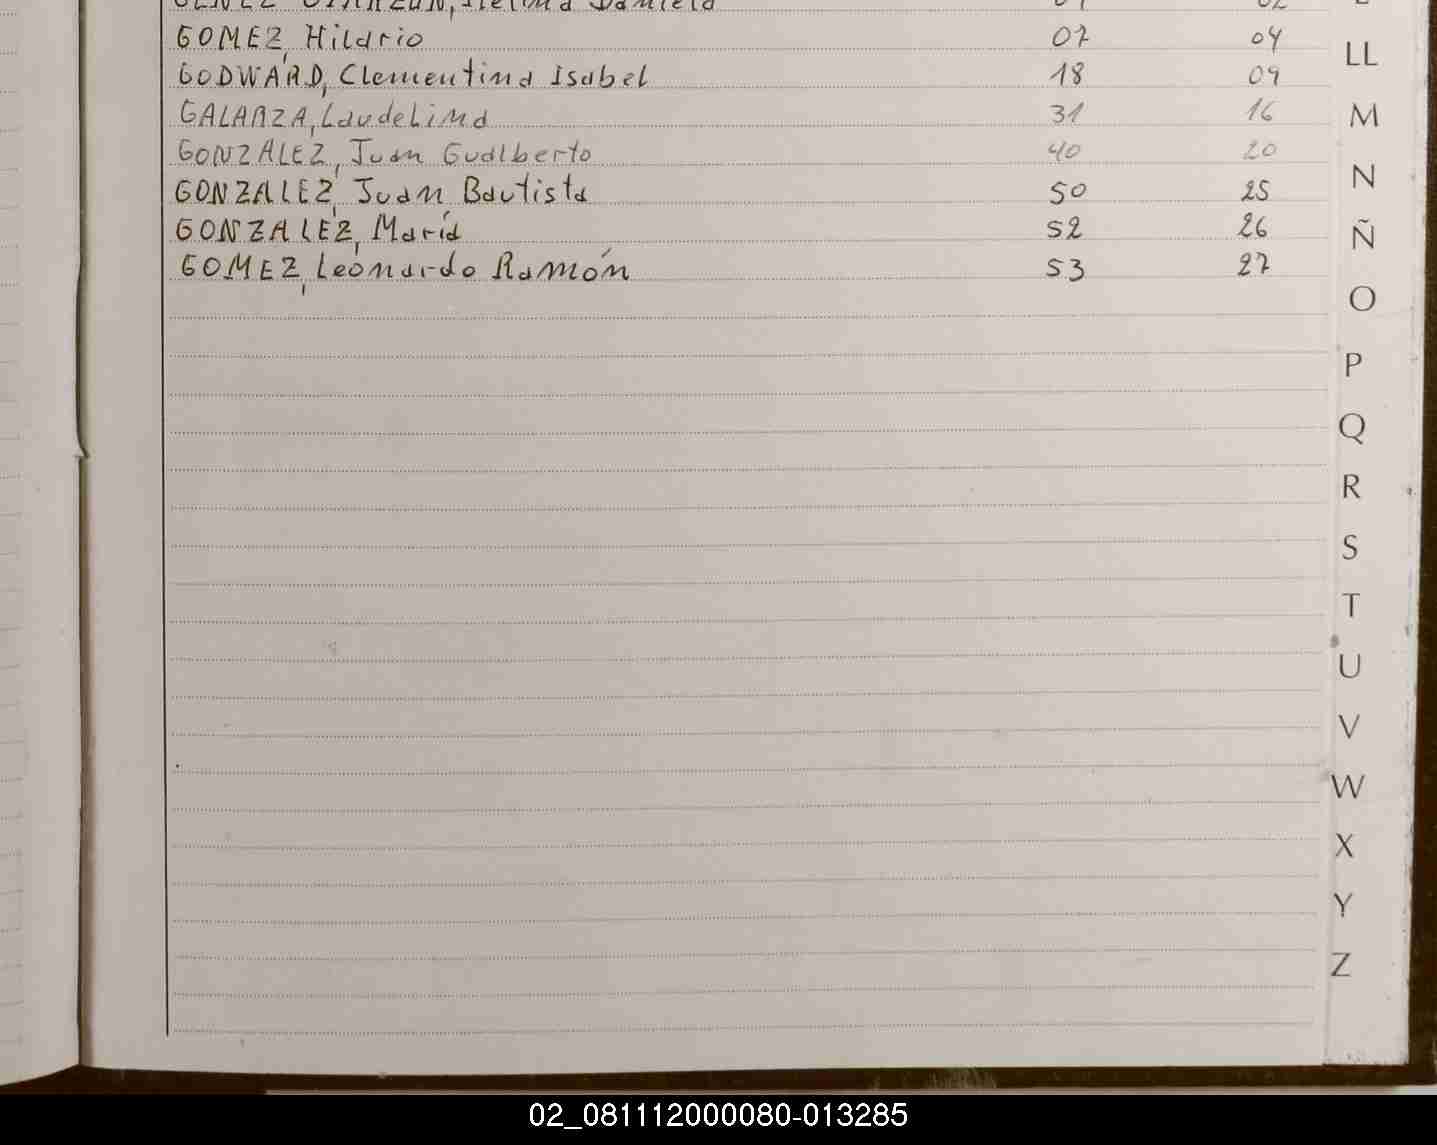 GOMEZ, Hilario 07 04
GODWARD, Clementina Isabel 18 09
GALARZA, Laudelina 31 16
GONZALEZ, Juan Gualberto 40 20
GONZALEZ, Juan Bautista 50 25
GONZALEZ, María 52 26
GOMEZ, Leonardo Ramón 53 27
LL
M
N
Ñ
O
P
Q
R
S
T
U
V
W
X
Y
Z
02_081112000080-013285